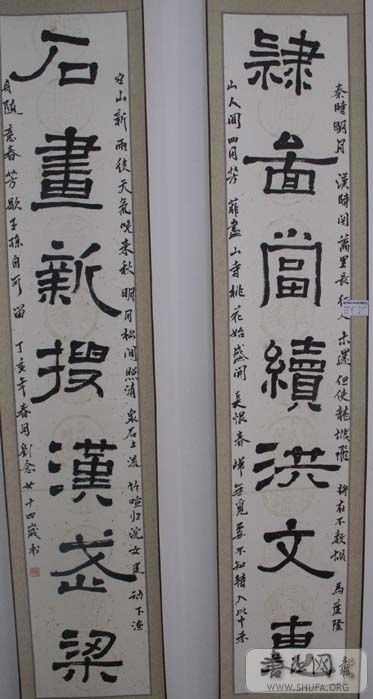 秦時明月漢時関萬里長征人未還但使龍城飛將在不教胡馬度陰
隸啚當續洪文惠
山人間四月芳菲盡山寺桃花始盛開長恨春歸無覓處不知轉入此中來
空山新雨後天氣晚來秋明月松間照清泉石上流竹喧归浣女蓮動下漁
石畫新搜漢武梁
舟隨意春芳歇王孫自可留丁亥年春月劉念廿十四歲书
WWW.SHUFA.ORG